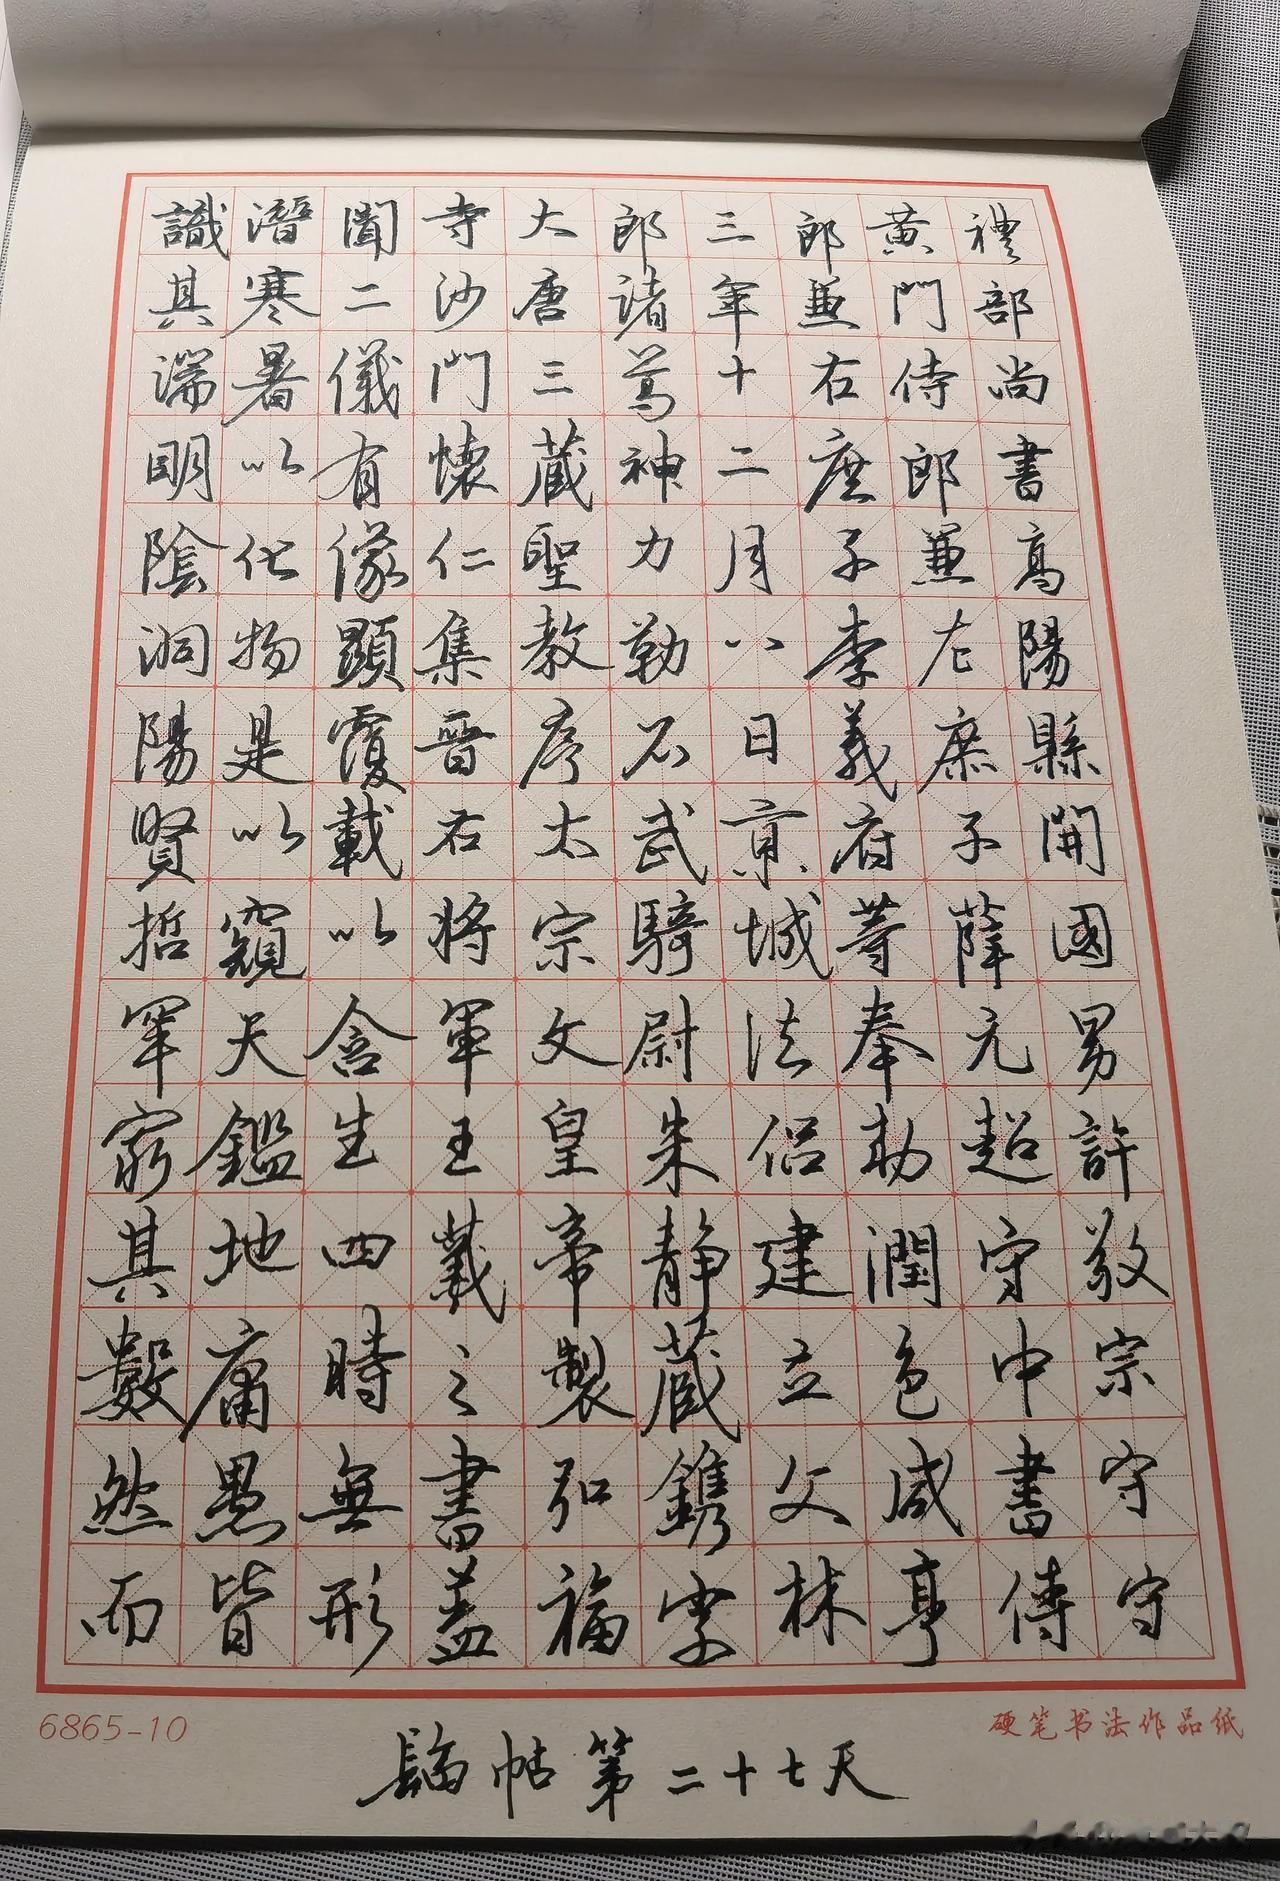 禮部尚書高陽縣開國男許敬宗守守
黃門侍郎兼左庶子薛元超守中書侍
郎兼右庶子李義府等奉勅潤色咸亨
三年十二月八日京城法侣建立文林
郎諸葛神力勒石武騎尉朱静藏鐫字
大唐三藏聖教序太宗文皇帝製弘福
寺沙門懷仁集晉右将軍王羲之書蓋
聞二儀有像顯覆載以含生四時無形
潛寒暑以化物是以窺天鑑地庸愚皆
識其端明陰洞陽賢哲罕窮其數然而
6865-10
硬笔书法作品纸
臨帖第二十七天